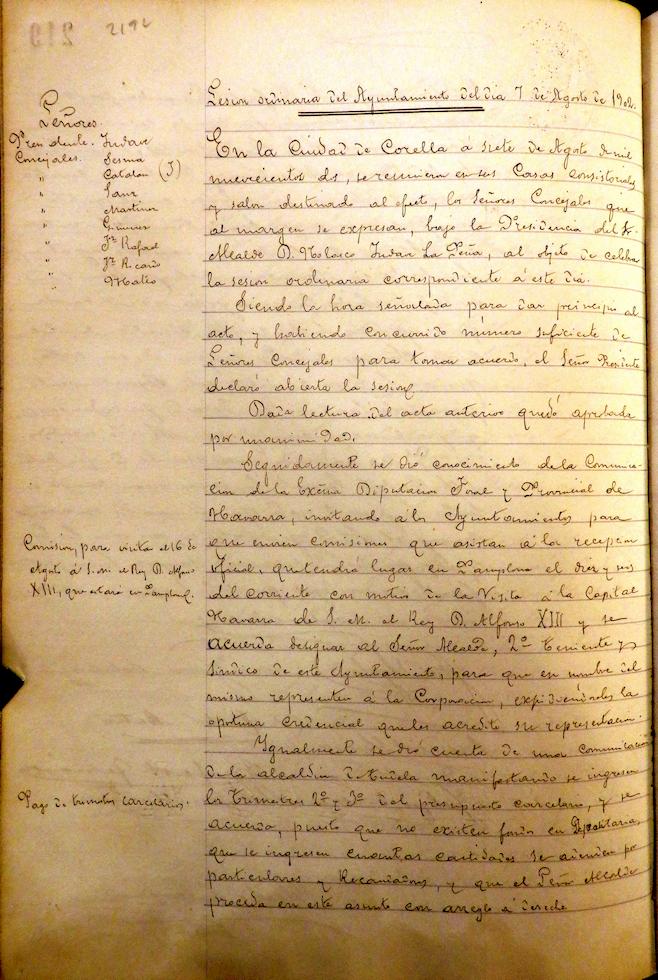 219v
Sesion ordinaria del Ayuntamiento del dia 7 de Agosto de 1902.
Señores.
Presidente. Indave
Concejales. Sesma
" Catalan (J)
" Sanz
" Martinez
" Gimenez
" Jz. Rafael
" Jz. Ricardo
" Mateo
En la Ciudad de Corella á siete de Agosto de mil
nuevecientos dos, se reunieron en sus Casas consistoriales
y salon destinado al efecto, los Señores Concejales que
al margen se expresan, bajo la Presidencia del Sr.
Alcalde D. Nolasco Indave La Peña, al objeto de celebrar
la sesion ordinaria correspondiente á este dia.
Siendo la hora señalada para dar principio al
acto, y habiendo concurrido número suficiente de
Señores Concejales para tomar acuerdo, el Señor Presidente
declaró abierta la sesion.
Dada lectura del acta anterior quedó aprobada
por unanimidad.
Seguidamente se dió conocimiento de la Comunica-
cion de la Excma Diputacion Foral y Provincial de
Navarra, invitando á los Ayuntamientos para
que envien comisiones que asistan á la recepcion
oficial, que tendrá lugar en Pamplona el diez y seis
del corriente con motivo de la Visita á la Capital
Navarra de S. M. el Rey D. Alfonso XIII y se
acuerda designar al Señor Alcalde, 2º teniente y
Sindico de este Ayuntamiento, para que en nombre del
mismo representen á la Corporacion, expidiendoles la
oportuna credencial que les acredite su representacion.
Igualmente se dió cuenta de una comunicacion
de la alcaldia de Tudela manifestando se ingresen
los trimestres 2º y 3º del presupuesto carcelario, y se
acuerda, puesto que no existen fondos en Depositaria,
que se ingresen cuantas cantidades se adeuden por
particulares y Recaudadores, y que el Señor Alcalde
proceda en este asunto con arreglo á derecho
Comision, para visita el 16 de
Agosto á S. M. el Rey D. Alfonso
XIII, que estará en Pamplona.
Pago de trimestres carcelarios.